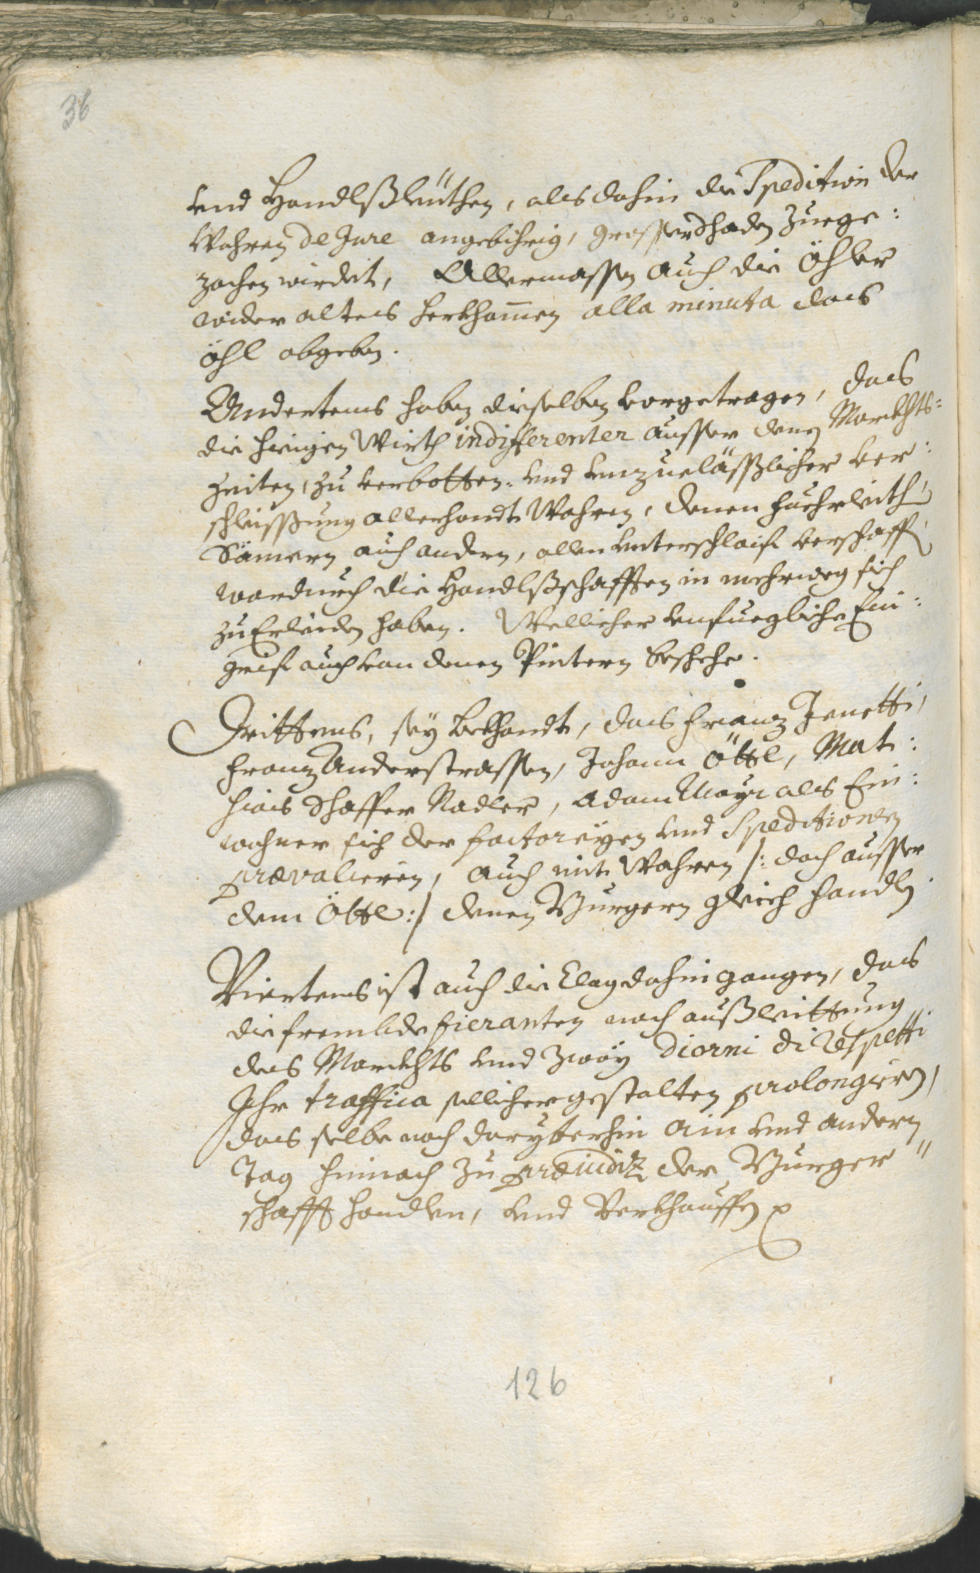 36
vnd Handlßleüthen, als dahin die Spedition der
Wahren de Jure angebihrig, grosser Schaden zuege:
zochen wirdet, Allermassen auch die Öhler
wider altes herkhom̄en alla minuta das
öhl abgeben.
Andertens haben dieselben vorgetragen, das
die hieigen Würth indifferenter ausser denen Markhts=
zeiten, zu verbotten- vnd vnzuelässlicher ver:
schleissung allerhandt Wahren, denen Fuehrleith
Sämern auch andern, allen vnterschlaif verschaffen
wardurch die Handlßschafften in mehrweg sich
zu Erleiden haben. Wellicher vnfuegliche Ein:
grif auch von denen Pintern beschehe.
Drittens, sey bekhandt, das Franz Zenetti,
Franz Anderstrassen, Johann Öttl, Mat:
hias Schaffer Nadler, Adam Mayr als Ein:
wohner sich der Factoreyen vnd Speditionen
prævalieren, auch mit Wahren /: doch ausser
dem Öttl :/ denen Burgern gleich handlen
Viertens ist auch die Clag dahin gangen, das
die frembde Fieranten nach außleittung
des Markhts vnd zwöy Giorni di respetti
Ihr traffica sollicher gestalten prolongiren,
das selbe noch daryberhin ain vnd andern
Tag hinnach zu præiudiz der Burger"
schafft handlen, vnd Verkhauffen
126